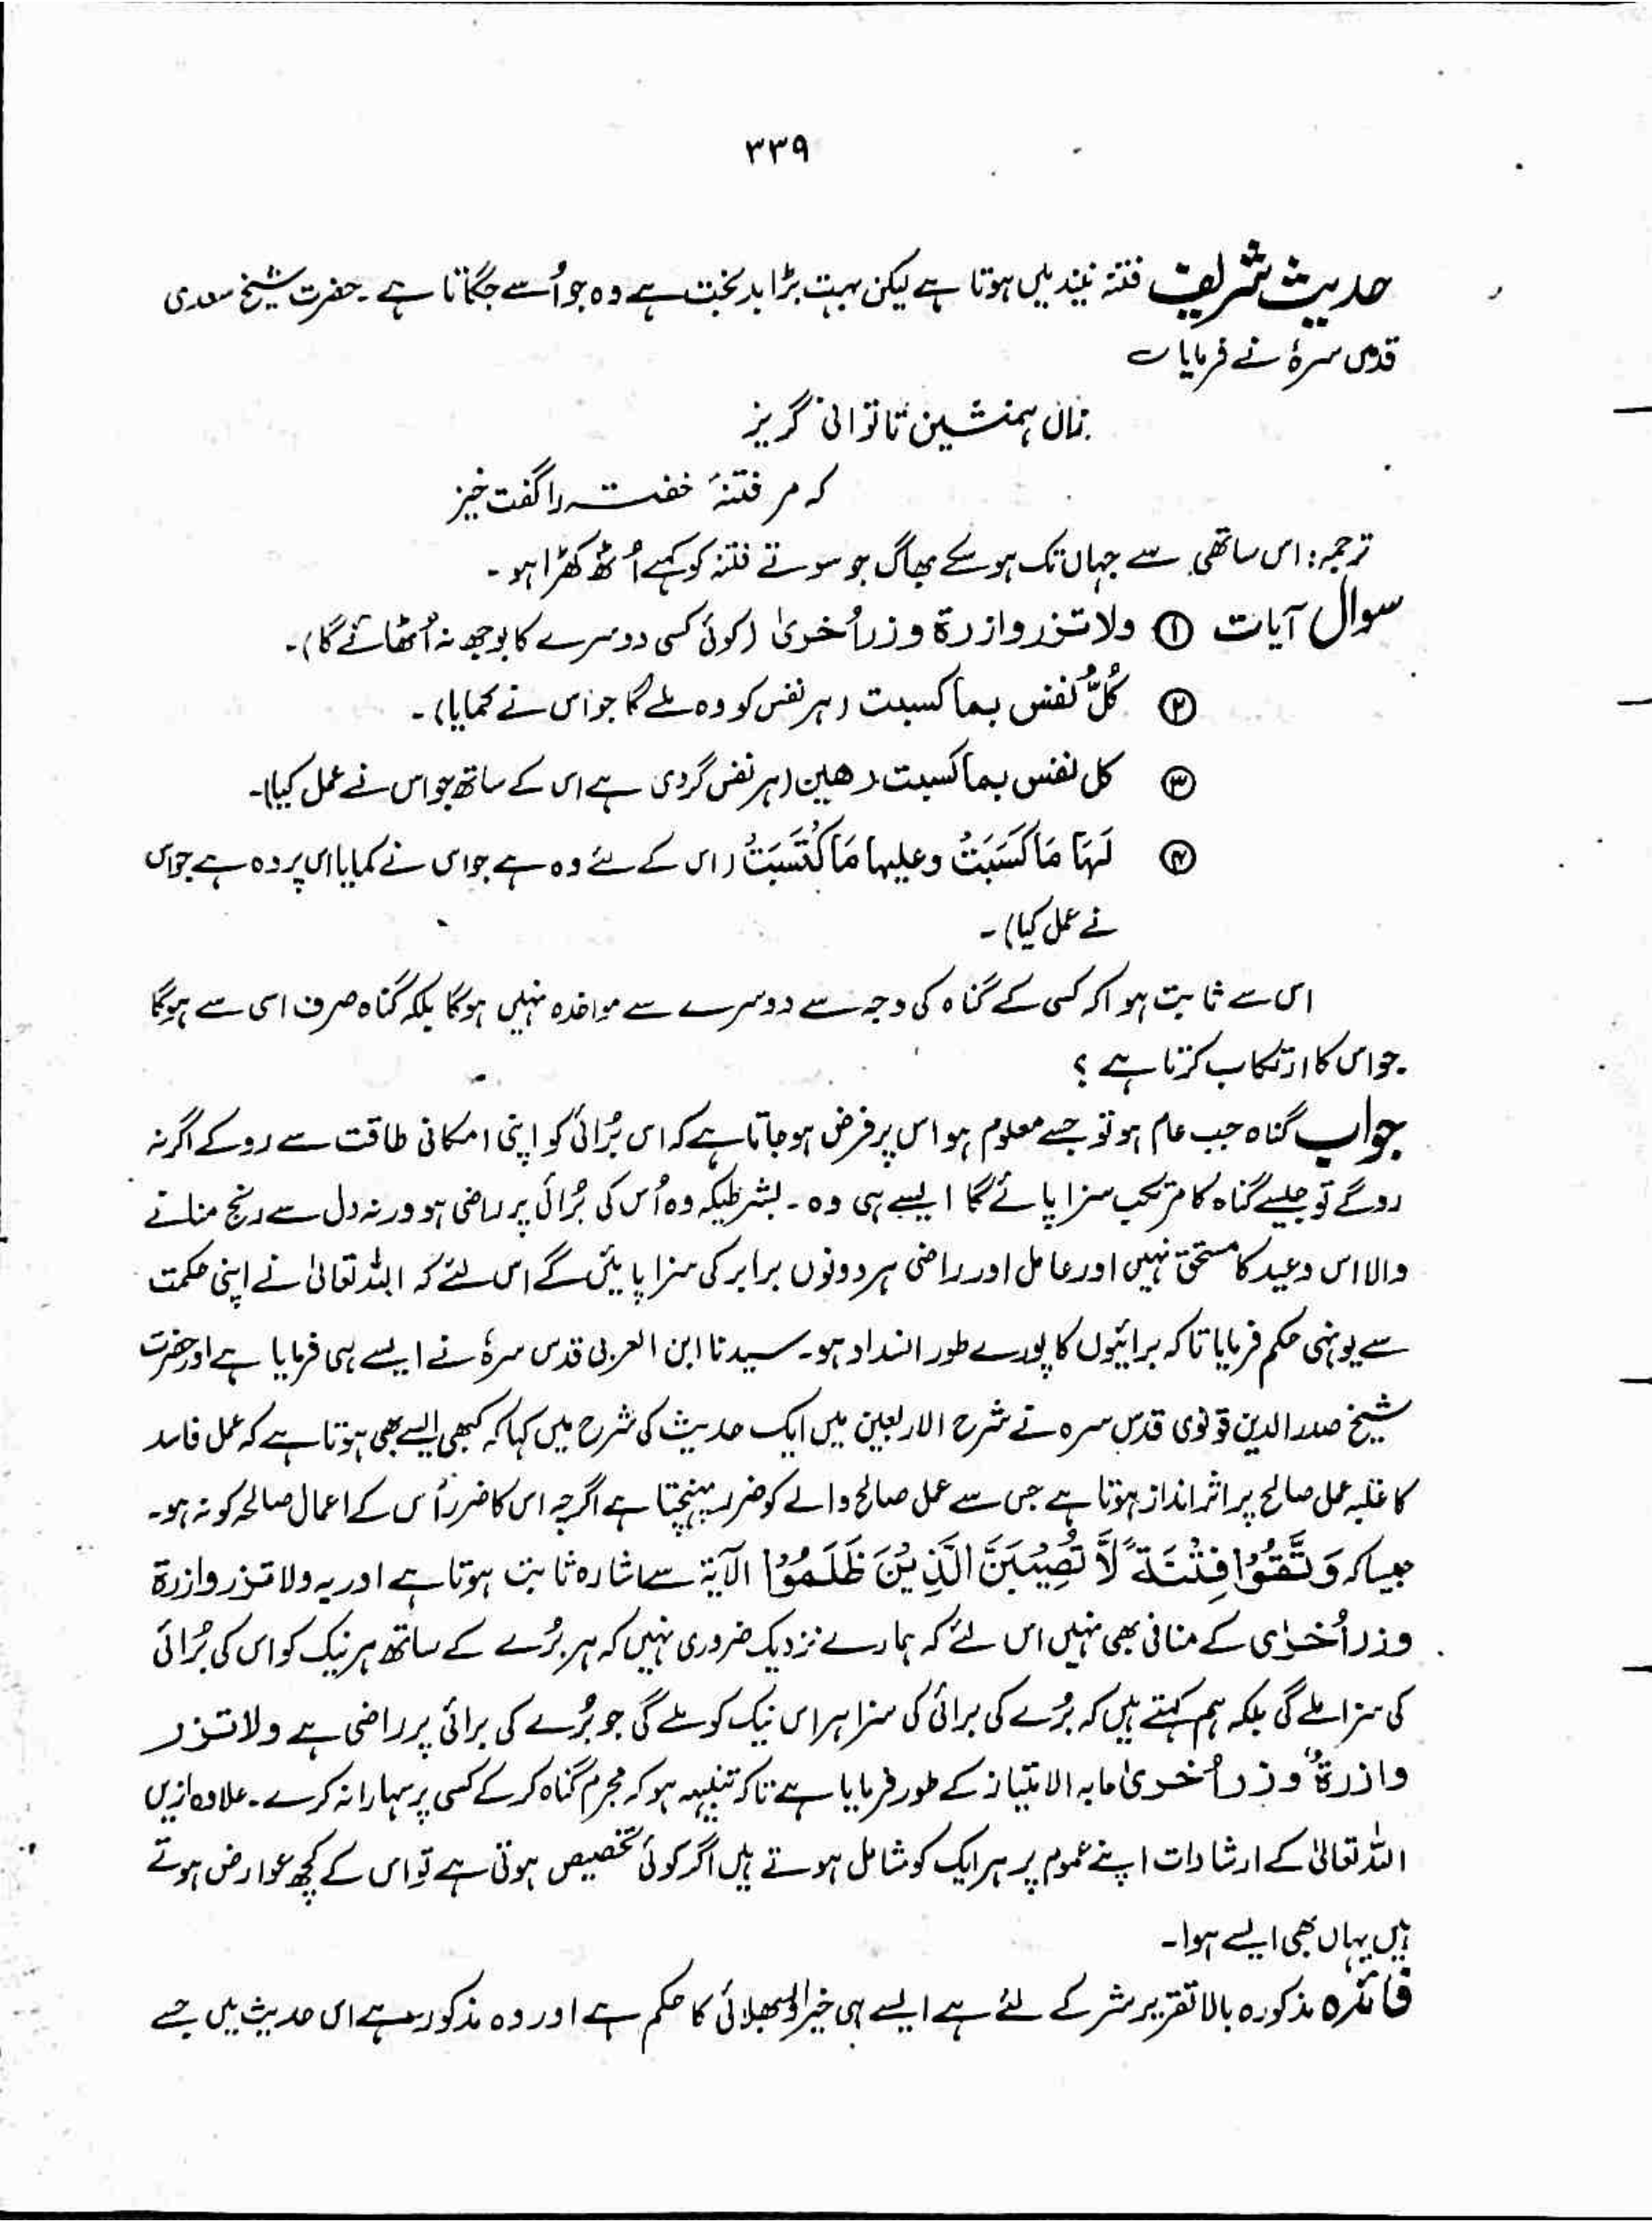 ۳۳۹
حدیث شریف فتنہ نیند میں ہوتا ہے لیکن بہت بڑا بدبخت ہے وہ جو اُسے جگاتا ہے ۔ حضرت شیخ سعدی
قدس سرہٗ نے فرمایا ؎
زاں ہمنشین تا توانی گریز
کہ مر فتنۂ خفتہ را گفت خیز
ترجمہ : اس ساتھی سے جہاں تک ہو سکے بھاگ جو سوتے فتنہ کو کہے اُٹھ کھڑا ہو ۔
سوال آیات ① ولا تزر وازرة وزر اُخریٰ (کوئی کسی دوسرے کا بوجھ نہ اُٹھائے گا) ۔
② کُلُّ نفس بما کسبت (ہر نفس کو وہ ملے گا جو اس نے کمایا) ۔
③ کل نفس بما کسبت رھین (ہر نفس گردی ہے اس کے ساتھ جو اس نے عمل کیا) ۔
④ لَہَا مَا کَسَبَتْ وعلیہا مَا کْتَسَبَتْ (اس کے لئے وہ ہے جو اس نے کمایا اس پر وہ ہے جو اس
نے عمل کیا) ۔
اس سے ثابت ہوا کہ کسی کے گناہ کی وجہ سے دوسرے سے مواخذہ نہیں ہوگا بلکہ گناہ صرف اسی سے ہوگا
جو اس کا ارتکاب کرتا ہے ؟
جواب گناہ جب عام ہو تو جسے معلوم ہو اس پر فرض ہو جاتا ہے کہ اس بُرائی کو اپنی امکانی طاقت سے روکے اگر نہ
روگے تو جیسے گناہ کا مرتکب سزا پائے گا ایسے ہی وہ ۔ بشرطیکہ وہ اُس کی بُرائی پر راضی ہو ورنہ دل سے رنج منانے
والا اس وعید کا مستحق نہیں اور عامل اور راضی ہر دونوں برابر کی سزا پائیں گے اس لئے کہ اللہ تعالیٰ نے اپنی حکمت
سے یونہی حکم فرمایا تاکہ برائیوں کا پورے طور انسداد ہو ۔ سیدنا ابن العربی قدس سرہٗ نے ایسے ہی فرمایا ہے اور حضرت
شیخ صدر الدین قونوی قدس سرہ نے شرح الاربعین میں ایک حدیث کی شرح میں کہا کہ کبھی ایسے بھی ہوتا ہے کہ عمل فاسد
کا غلبہ عمل صالح پر اثر انداز ہوتا ہے جس سے عمل صالح والے کو ضرر پہنچتا ہے اگرچہ اس کا ضرر اُس کے اعمال صالحہ کو نہ ہو ۔
جیسا کہ وَتَّقُوْا فِتْنَةً لَّا تُصِیْبَنَّ الَّذِیْنَ ظَلَمُوْا الآیۃ سے اشارہ ثابت ہوتا ہے اور یہ ولا تزر وازرة
وزر اُخریٰ کے منافی بھی نہیں اس لئے کہ ہمارے نزدیک ضروری نہیں کہ ہر بُرے کے ساتھ ہر نیک کو اس کی بُرائی
کی سزا ملے گی بلکہ ہم کہتے ہیں کہ بُرے کی برائی کی سزا ہر اس نیک کو ملے گی جو بُرے کی برائی پر راضی ہے ولا تزر
وازرةٌ وزر اُخریٰ مابہ الامتیاز کے طور فرمایا ہے تاکہ تنبیہہ ہو کہ مجرم گناہ کر کے کسی پر سہارا نہ کرے ۔ علاوہ ازیں
اللہ تعالیٰ کے ارشادات اپنے عموم پر ہر ایک کو شامل ہوتے ہیں اگر کوئی تخصیص ہوتی ہے تو اس کے کچھ عوارض ہوتے
ہیں یہاں بھی ایسے ہوا ۔
فائدہ مذکورہ بالا تقریر شر کے لئے ہے ایسے ہی خیر و بھلائی کا حکم ہے اور وہ مذکور ہے اس حدیث میں جسے